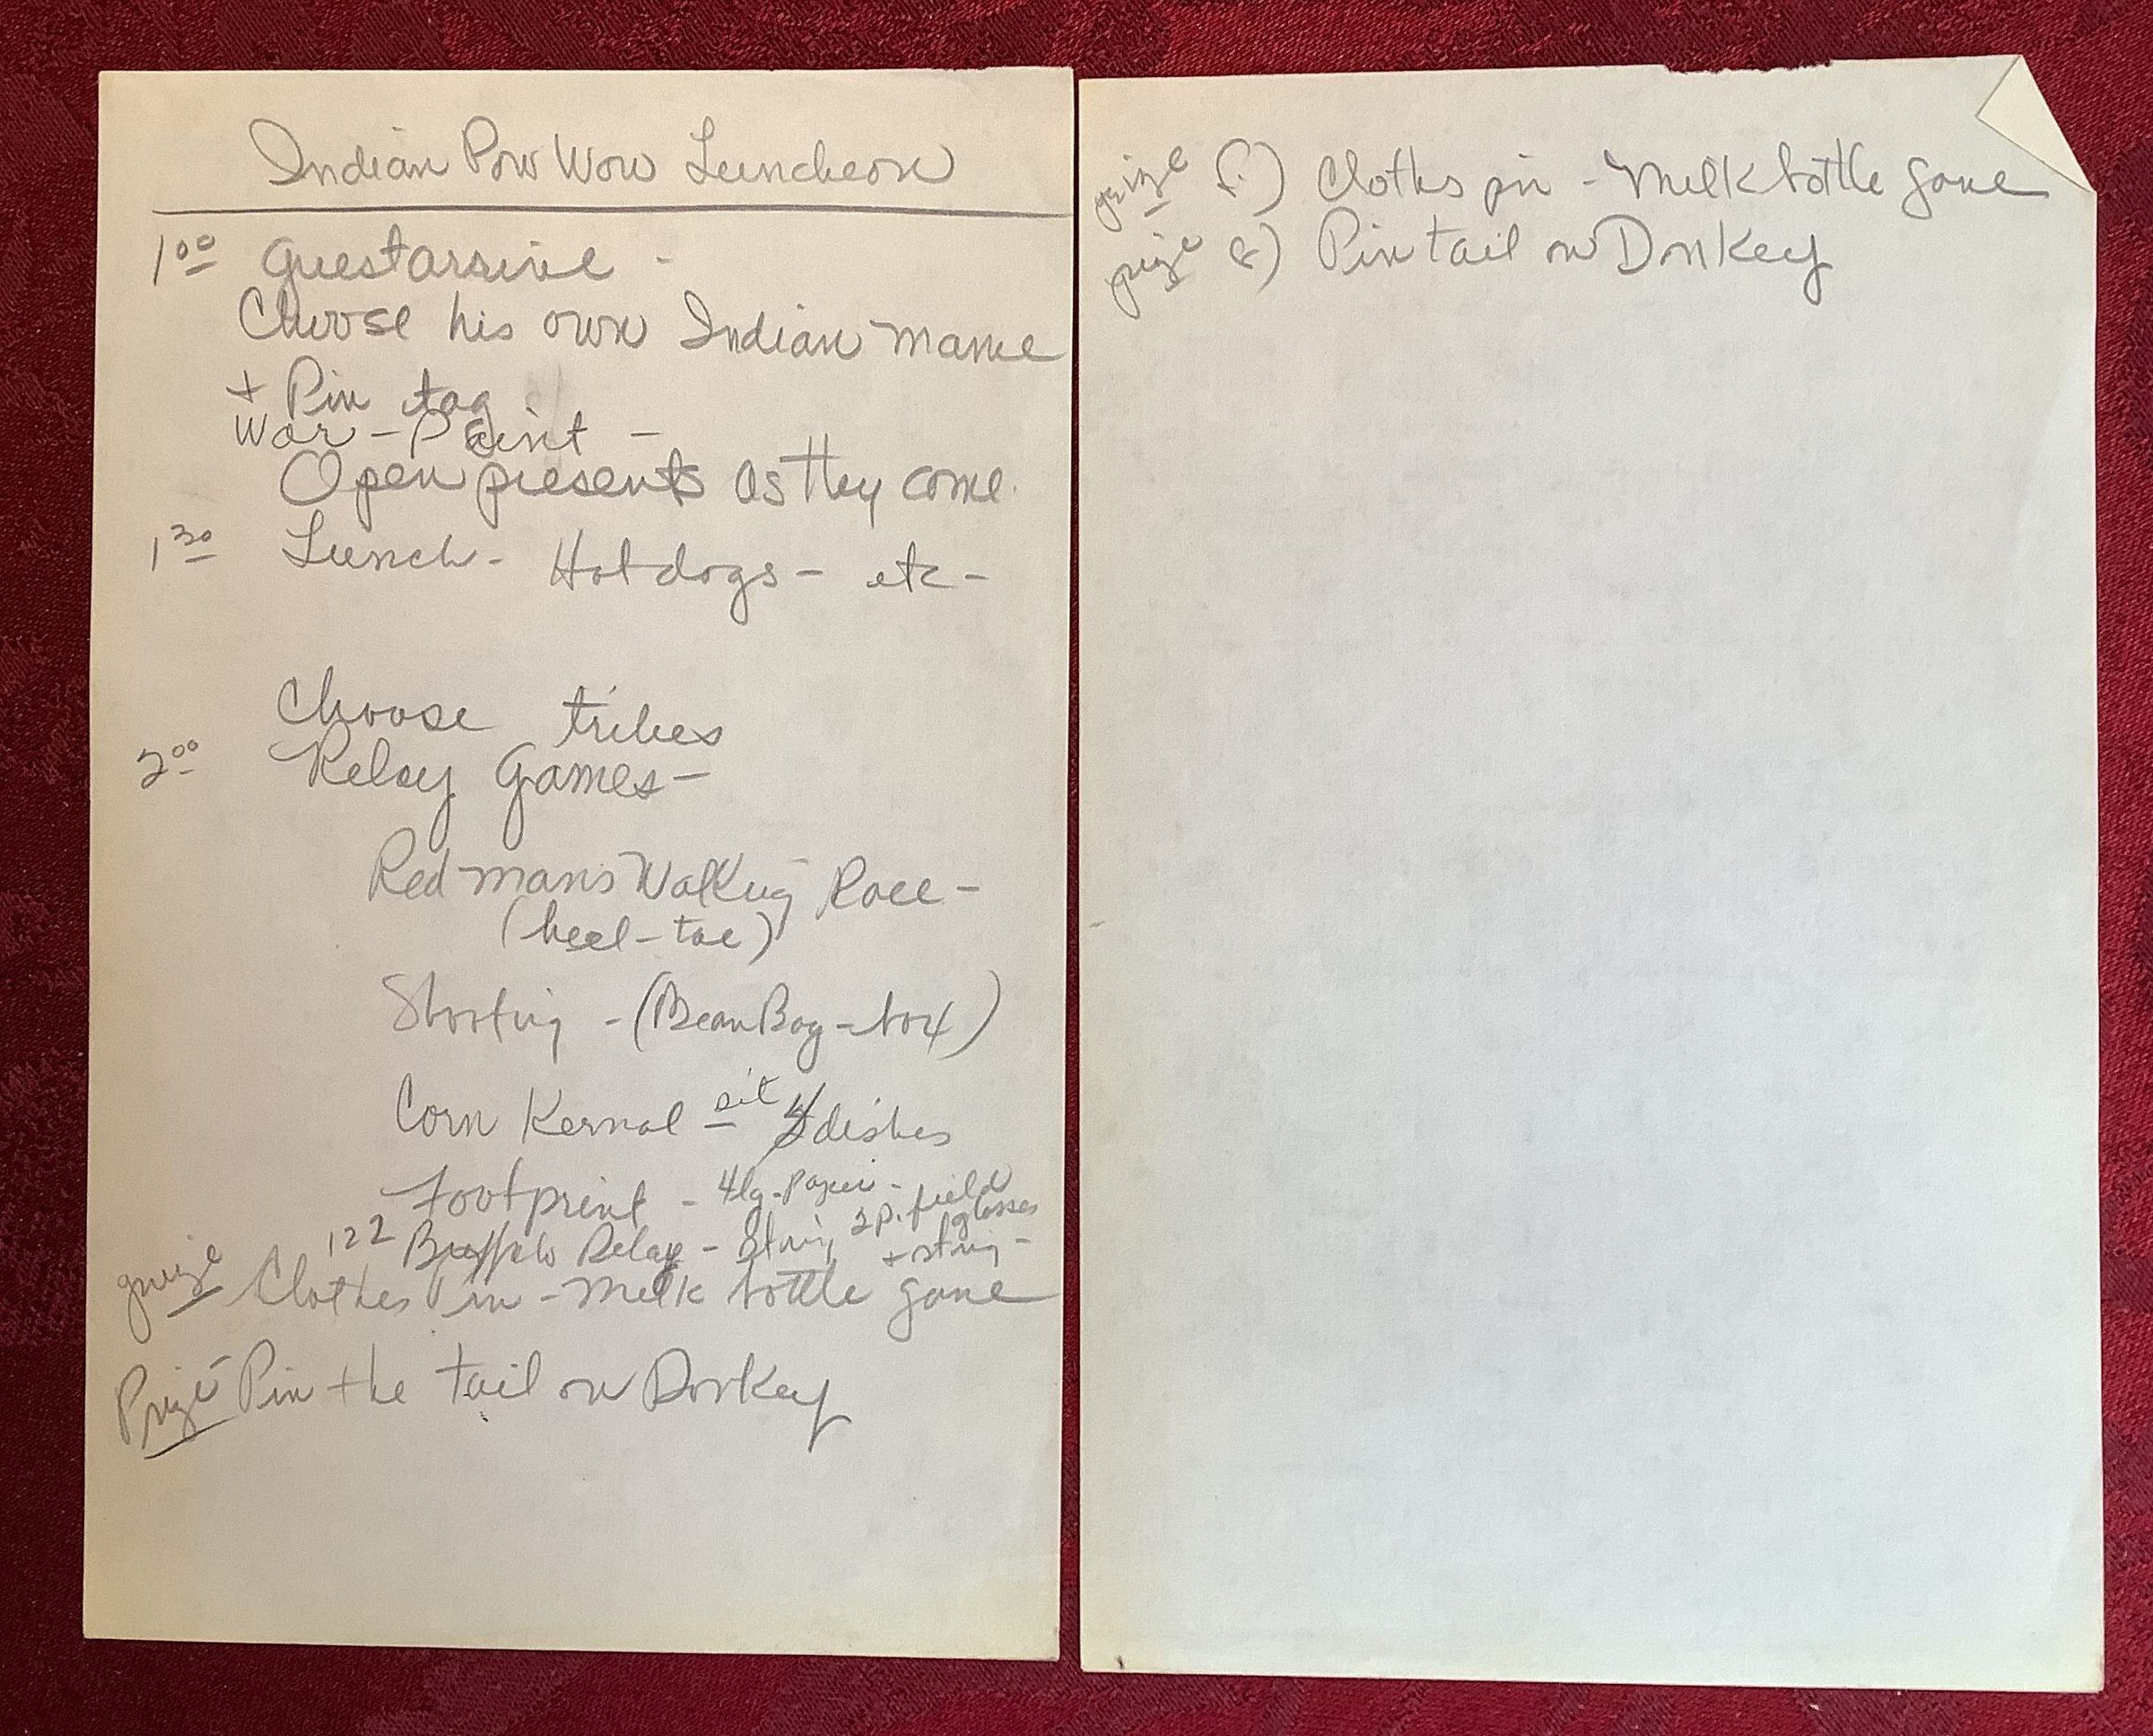 Indian Pow Wow Luncheon
1 00 Guest arrive -
Choose his own Indian name
+ Pin tag
War - Paint -
Open presents as they come.
1 30 Lunch - Hot dogs - etc -
Choose tribes
2 00 Relay Games -
Red man's Walking Race -
(heel - toe)
Shooting - (Bean Bag - box)
Corn Kernal - sit 4 dishes
Footprint - 4 lg. paper -
122 Buffalo Relay - String 2 p. field glasses
+ string -
prize Clothes Pin - Milk bottle game
Prize Pin the tail on Donkey
prize f.) Cloths pin - Milk bottle game
prize g) Pin tail on Donkey